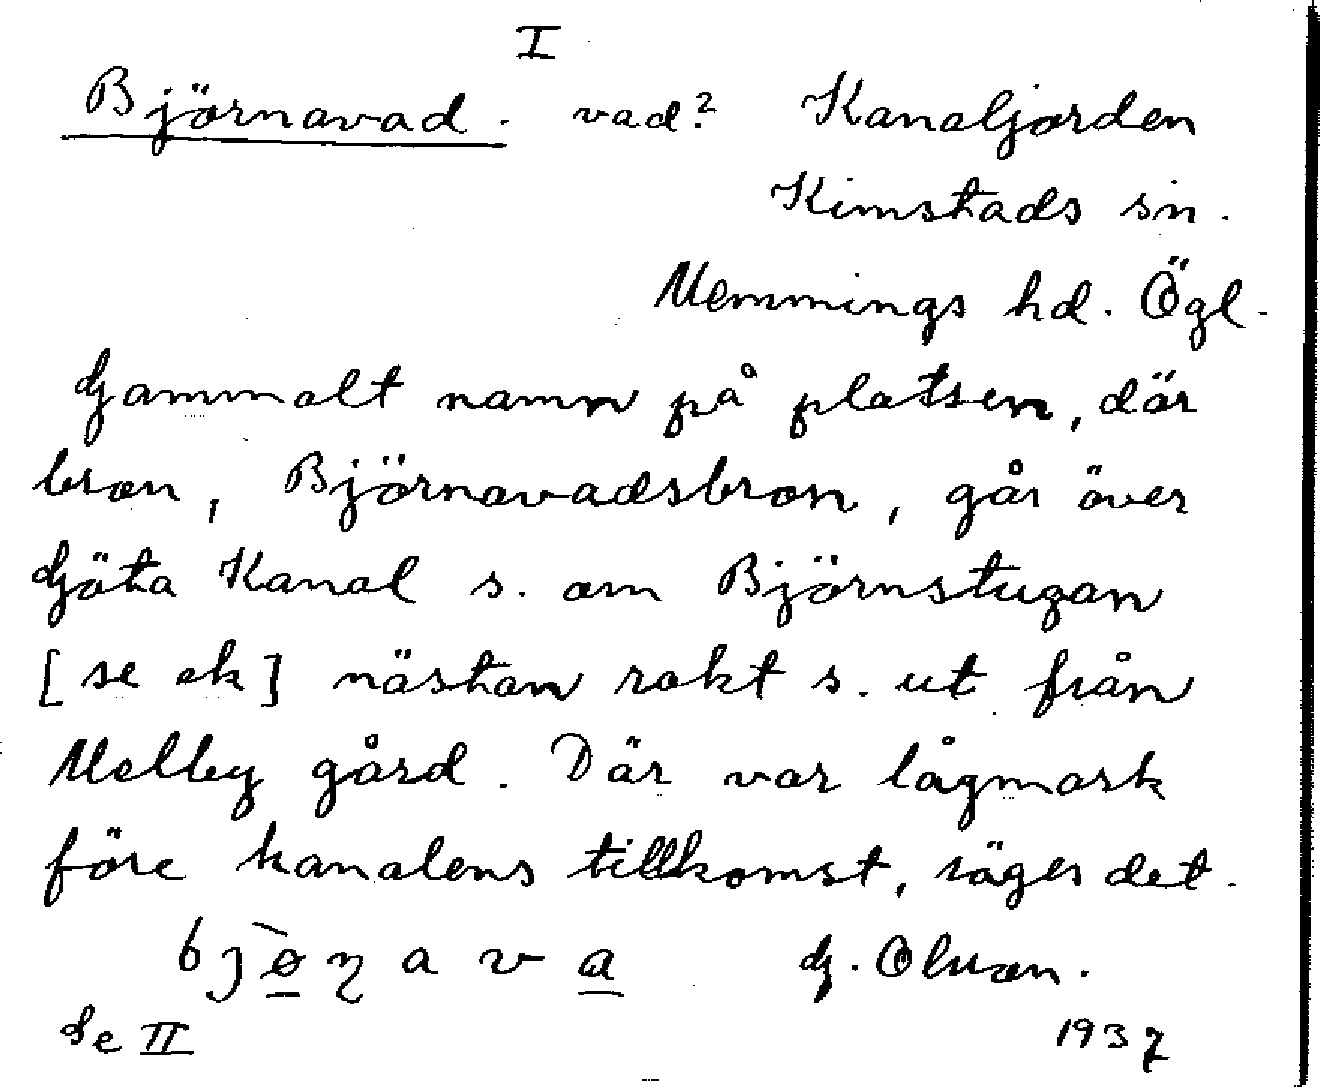 I
Björnavad. vad? Kanaljorden
Kimstads sn.
Memmings hd. Ögl.
Gammalt namn på platsen, där
bron, Björnavadsbron, går över
Göta Kanal s. om Björnstugan
[se ek] nästan rakt s. ut från
Melby gård. Där var lågmark
före kanalens tillkomst, säges det.
G.
Se II 1937